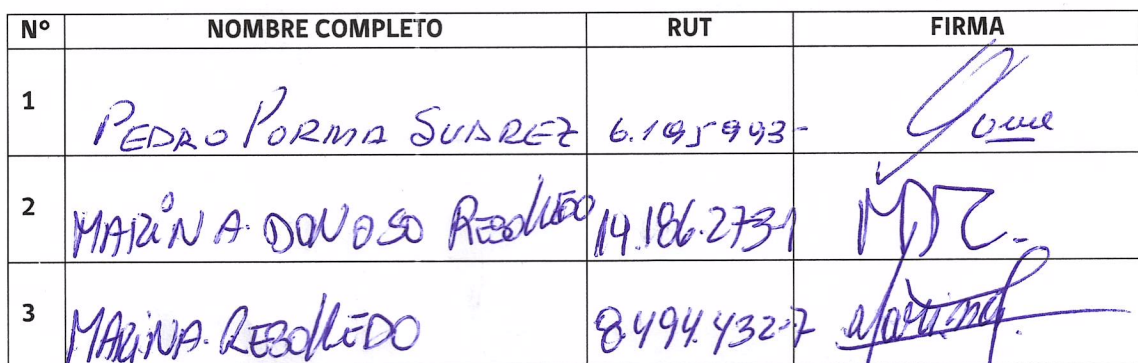 Nº NOMBRE COMPLETO RUT FIRMA
1 PEDRO PORMA SUAREZ 6.195993-
2 MARINA DONOSO REBOLLEDO 14.186.273-1 MDR.
3 MARINA REBOLLEDO 8.494.432-7 Marina